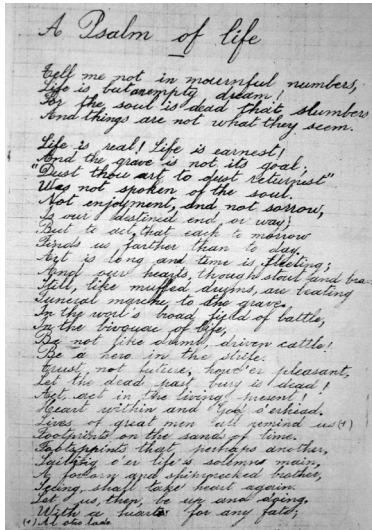 A Psalm of life
Tell me not in mournful numbers,
Life is but an empty dream!
For the soul is dead that slumbers
And things are not what they seem.
Life is real! Life is earnest!
And the grave is not its goal;
"Dust thou art to dust returnest"
Was not spoken of the soul.
Not enjoyment, and not sorrow,
Is our destined end or way;
But to act, that each to morrow
Finds us farther than to day.
Art is long and time is fleeting;
And our hearts, though stout and bra-
Still, like muffled drums, are beating
Funeral marche to the grave.
In the worl's broad field of battle,
In the bivouac of life,
Be not like dumb, driven cattle!
Be a hero in the strife.
Trust not future, how'er pleasant,
Let the dead past bury is dead!
Act, act in the living present!
Heart within and God o'erhead.
Lives of great men all remind us (1)
Footprints on the sands of time.
Footsprints that, perhaps another,
o'er life's solemn main,
A forlorn and shipwrecked brother,
shall take heart again.
Let us, then, be up and doing.
With a heart for any fate;
(1) Al otro lado